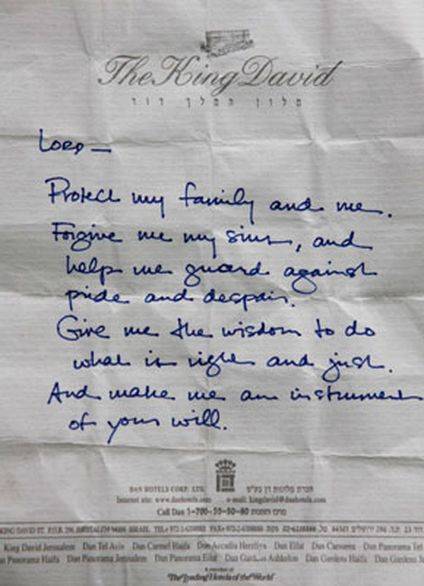 The King David
מלון המלך דוד
Lord —
Protect my family and me.
Forgive me my sins, and
help me guard against
pride and despair.
Give me the wisdom to do
what is right and just.
And make me an instrument
of your will.
DAN HOTELS CORP. LTD. חברת מלונות דן בע״מ
Internet site: www.danhotels.com e-mail: kingdavid@danhotels.com
Call Dan 1-700-50-50-80
KING DAVID ST. JERUSALEM ISRAEL
King David Jerusalem Dan Tel Aviv Dan Carmel Haifa Dan Accadia Herzliya Dan Eilat Dan Caesarea Dan Panorama Tel
Panorama Haifa Dan Panorama Jerusalem Dan Panorama Eilat Dan Gardens Ashkelon Dan Gardens Haifa Dan Gardens
A member of
The Leading Hotels of the World